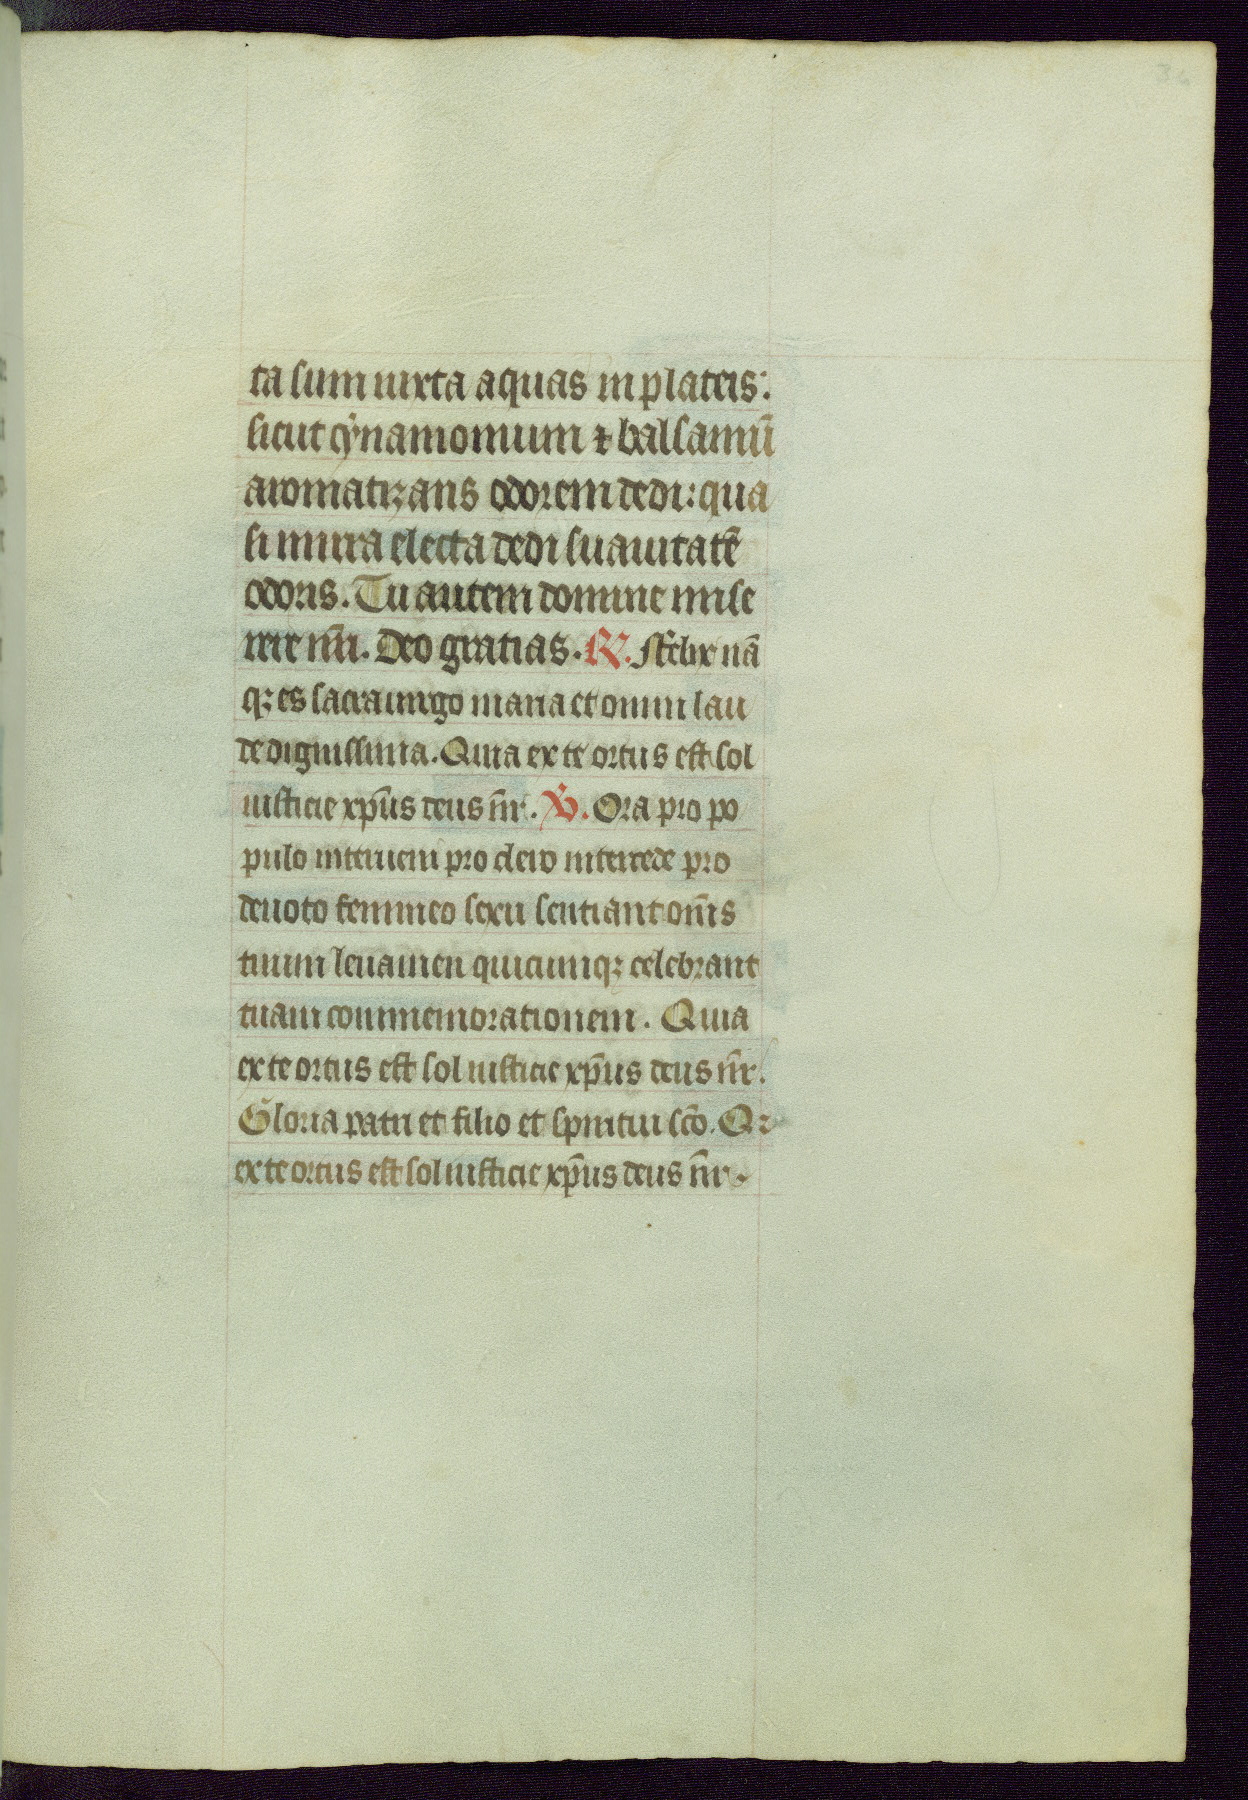 ta sum iuxta aquas in plateis:
sicut cynamomum ⁊ balsamū
aromatizans odorem dedi: qua
si mirra electa dedi suauitatē
odoris. Tu autem domine mise
rere nr̄i. Deo gratias. R. Felix nā
qꝫ es sacra uirgo maria et omni lau
de dignissima. Quia ex te ortus est sol
iusticie xp̄us deus nr̄. V. Ora pro po
pulo interueni pro clero intercede pro
deuoto femineo sexu sentiant om̄s
tuum leuamen quicumqꝫ celebrant
tuam commemorationem. Quia
ex te ortus est sol iusticie xp̄us deus nr̄.
Gloria patri et filio et spiritui sc̄o. Qꝛ
ex te ortus est sol iusticie xp̄us deus nr̄.